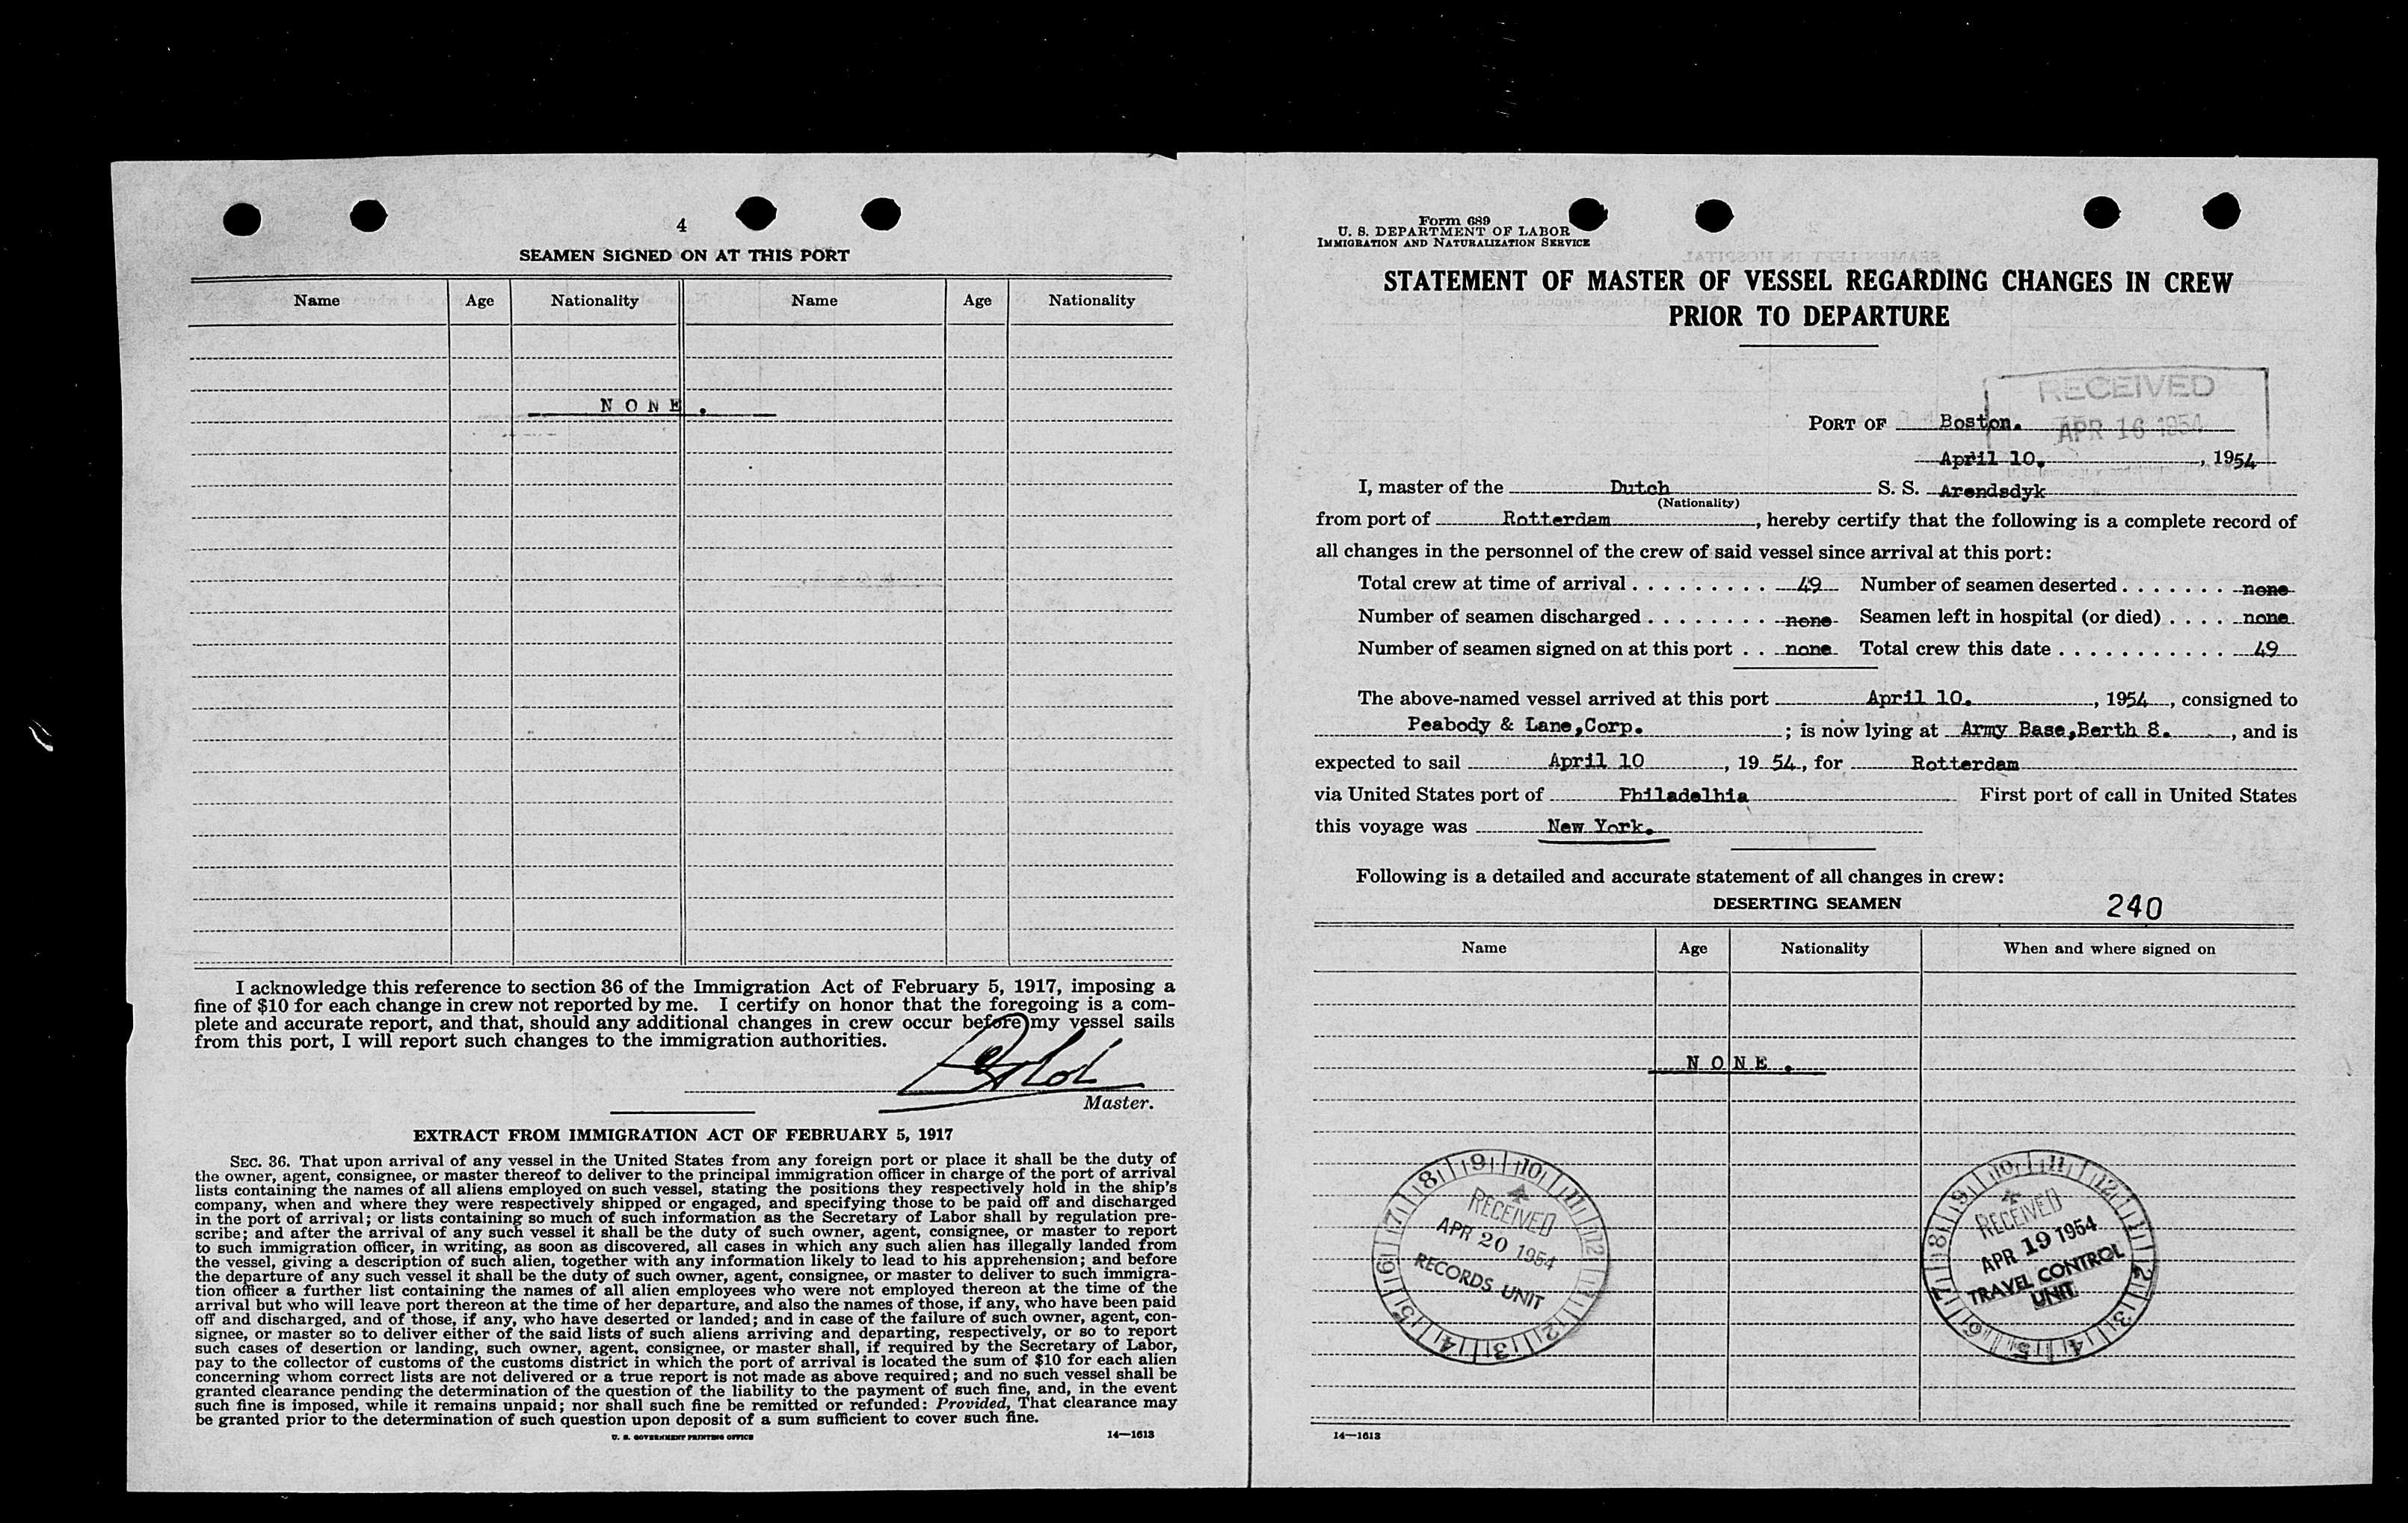 4
SEAMEN SIGNED ON AT THIS PORT
Name Age Nationality Name Age Nationality
NONE.
I acknowledge this reference to section 36 of the Immigration Act of February 5, 1917, imposing a
fine of $10 for each change in crew not reported by me. I certify on honor that the foregoing is a com-
plete and accurate report, and that, should any additional changes in crew occur before my vessel sails
from this port, I will report such changes to the immigration authorities.
Master.
EXTRACT FROM IMMIGRATION ACT OF FEBRUARY 5, 1917
SEC. 36. That upon arrival of any vessel in the United States from any foreign port or place it shall be the duty of
the owner, agent, consignee, or master thereof to deliver to the principal immigration officer in charge of the port of arrival
lists containing the names of all aliens employed on such vessel, stating the positions they respectively hold in the ship's
company, when and where they were respectively shipped or engaged, and specifying those to be paid off and discharged
in the port of arrival; or lists containing so much of such information as the Secretary of Labor shall by regulation pre-
scribe; and after the arrival of any such vessel it shall be the duty of such owner, agent, consignee, or master to report
to such immigration officer, in writing, as soon as discovered, all cases in which any such alien has illegally landed from
the vessel, giving a description of such alien, together with any information likely to lead to his apprehension; and before
the departure of any such vessel it shall be the duty of such owner, agent, consignee, or master to deliver to such immigra-
tion officer a further list containing the names of all alien employees who were not employed thereon at the time of the
arrival but who will leave port thereon at the time of her departure, and also the names of those, if any, who have been paid
off and discharged, and of those, if any, who have deserted or landed; and in case of the failure of such owner, agent, con-
signee, or master so to deliver either of the said lists of such aliens arriving and departing, respectively, or so to report
such cases of desertion or landing, such owner, agent, consignee, or master shall, if required by the Secretary of Labor,
pay to the collector of customs of the customs district in which the port of arrival is located the sum of $10 for each alien
concerning whom correct lists are not delivered or a true report is not made as above required; and no such vessel shall be
granted clearance pending the determination of the question of the liability to the payment of such fine, and, in the event
such fine is imposed, while it remains unpaid; nor shall such fine be remitted or refunded: Provided, That clearance may
be granted prior to the determination of such question upon deposit of a sum sufficient to cover such fine.
U. S. GOVERNMENT PRINTING OFFICE 14—1613
Form 689
U. S. DEPARTMENT OF LABOR
IMMIGRATION AND NATURALIZATION SERVICE
STATEMENT OF MASTER OF VESSEL REGARDING CHANGES IN CREW
PRIOR TO DEPARTURE
RECEIVED
APR 16 1954
PORT OF Boston.
April 10, , 1954
I, master of the Dutch S. S. Arendsdyk
(Nationality)
from port of Rotterdam , hereby certify that the following is a complete record of
all changes in the personnel of the crew of said vessel since arrival at this port:
Total crew at time of arrival 49 Number of seamen deserted none
Number of seamen discharged none Seamen left in hospital (or died) none
Number of seamen signed on at this port none Total crew this date 49
The above-named vessel arrived at this port April 10. , 1954 , consigned to
Peabody & Lane,Corp. ; is now lying at Army Base,Berth 8. , and is
expected to sail April 10 , 19 54 , for Rotterdam
via United States port of Philadelhia First port of call in United States
this voyage was New York.
Following is a detailed and accurate statement of all changes in crew:
DESERTING SEAMEN 240
Name Age Nationality When and where signed on
NONE.
RECEIVED
APR 20 1954
RECORDS UNIT
RECEIVED
APR 19 1954
TRAVEL CONTROL
UNIT
14—1613